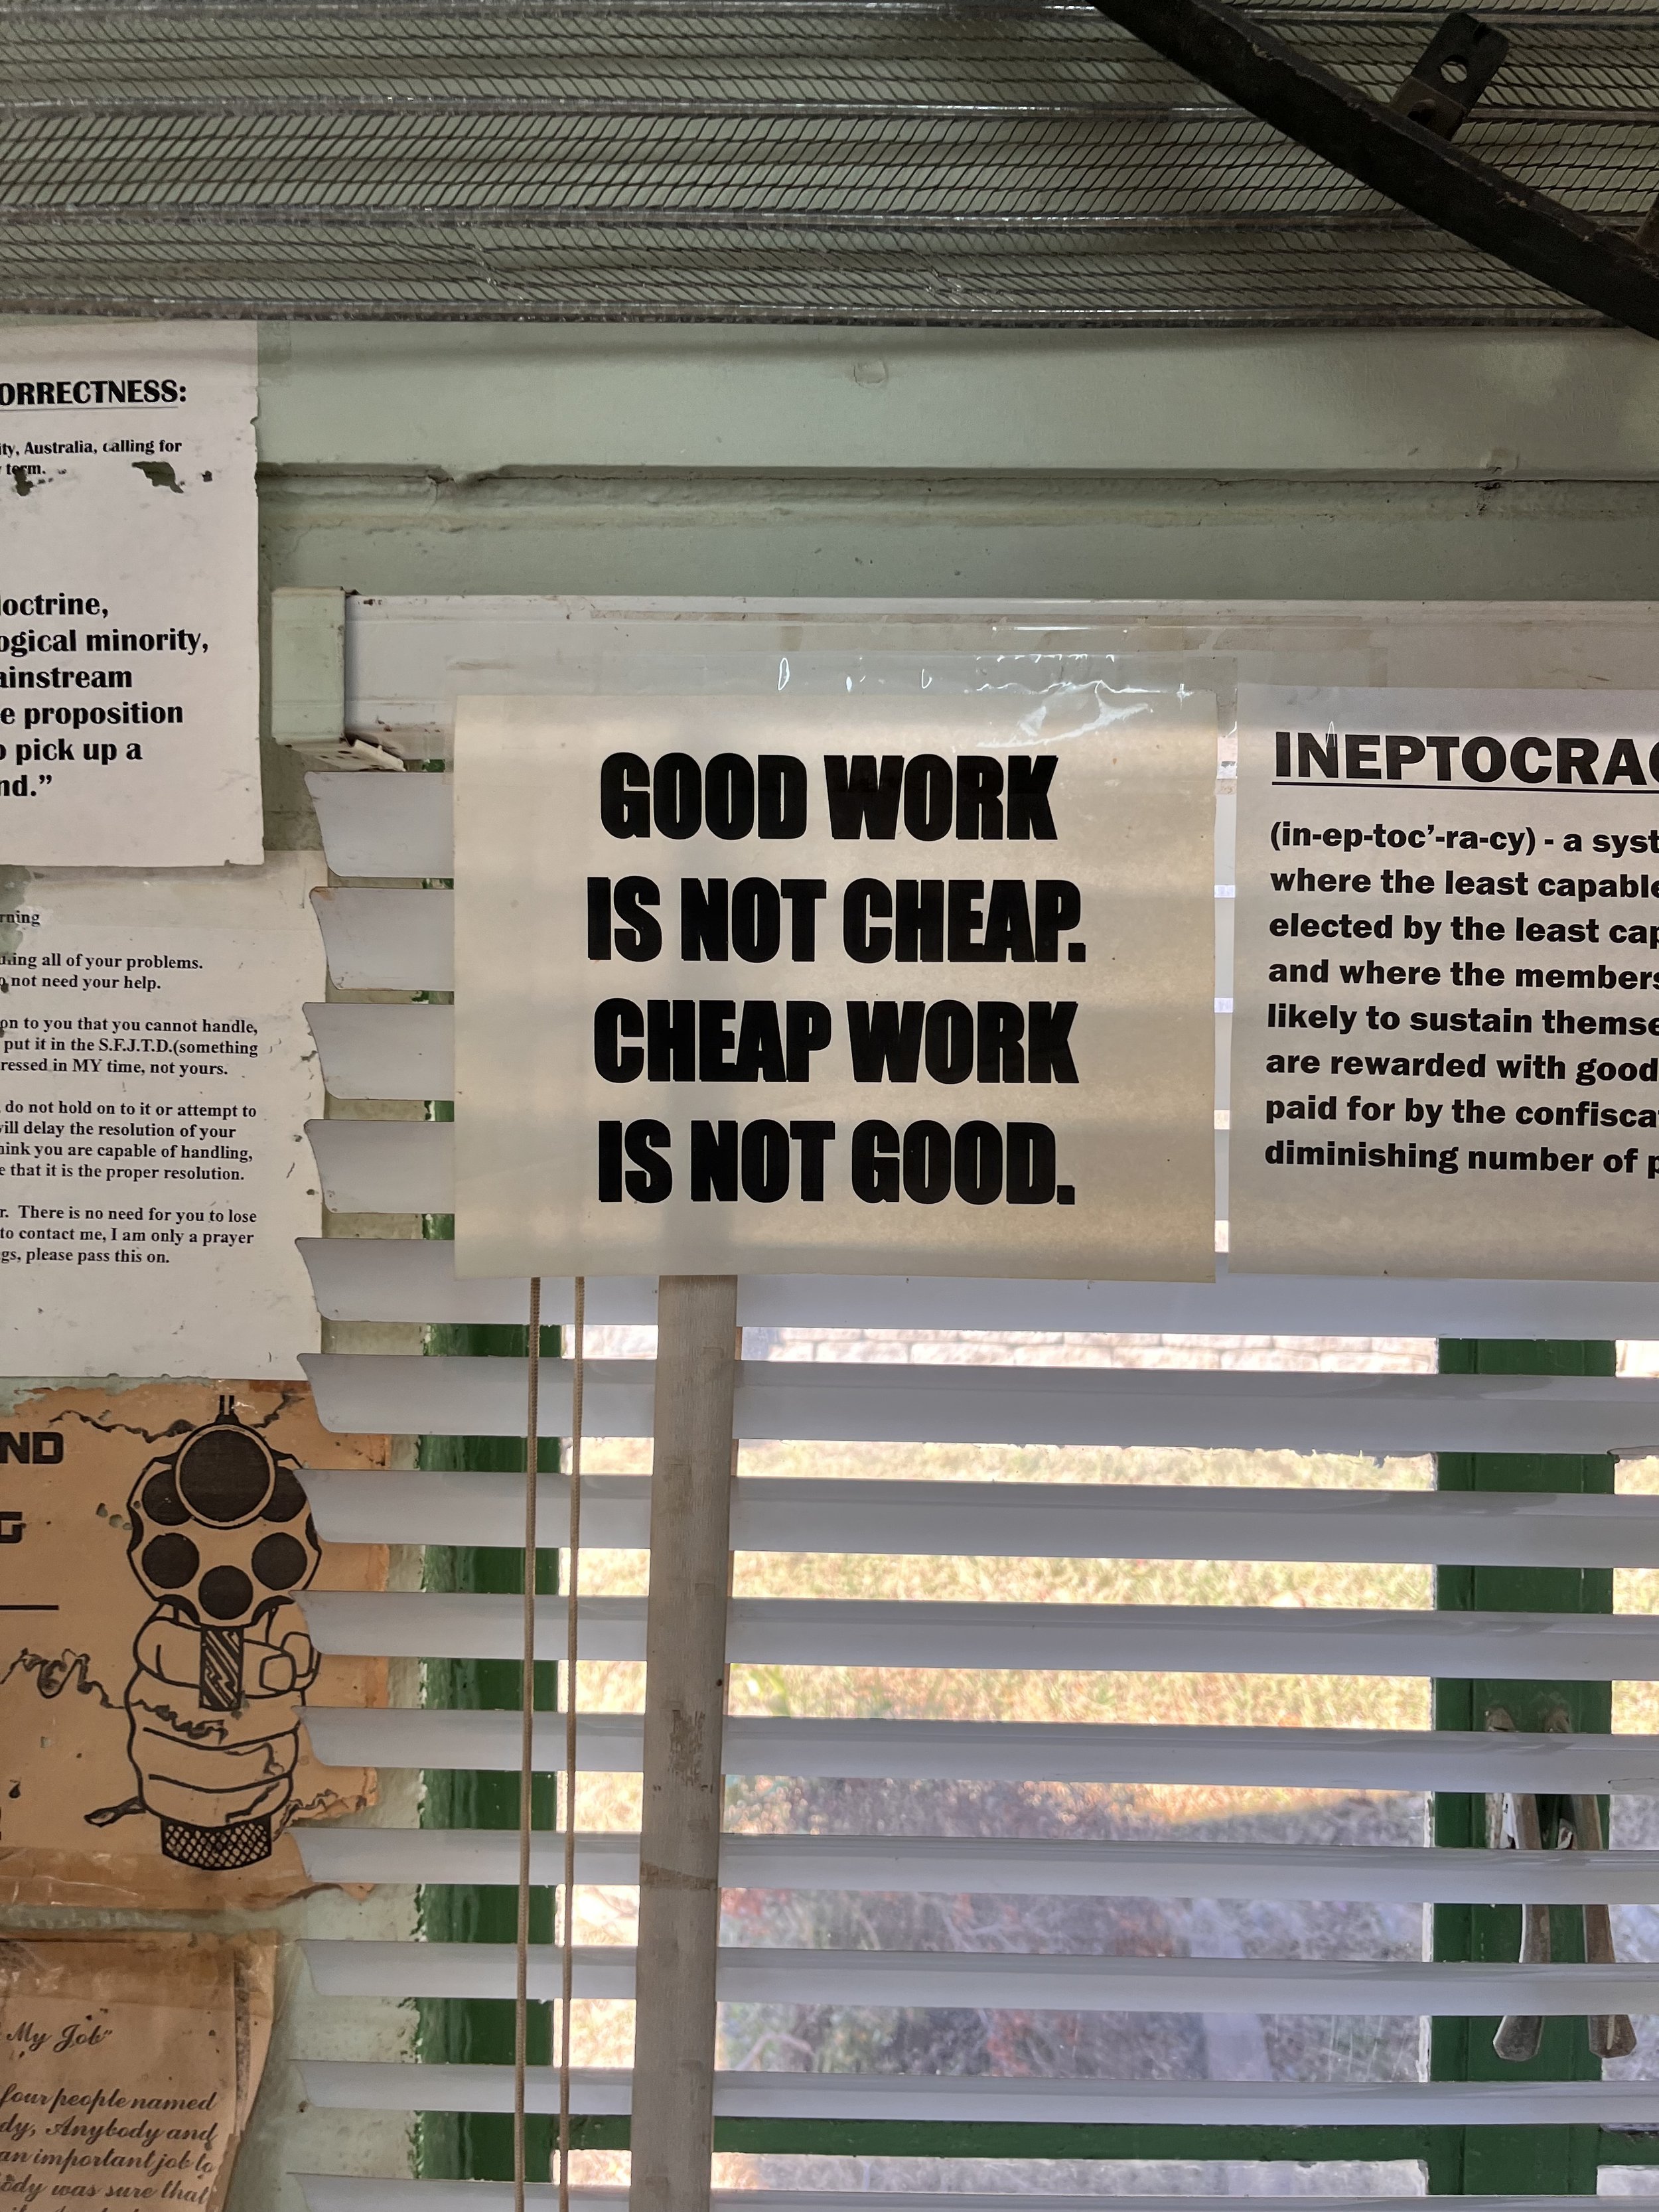 ORRECTNESS:
ity, Australia, calling for
term.
octrine,
ogical minority,
ainstream
e proposition
o pick up a
nd.”
rning
ing all of your problems.
not need your help.
on to you that you cannot handle,
put it in the S.F.J.T.D.(something
ressed in MY time, not yours.
do not hold on to it or attempt to
will delay the resolution of your
hink you are capable of handling,
e that it is the proper resolution.
r. There is no need for you to lose
to contact me, I am only a prayer
gs, please pass this on.
ND
G
My Job”
four people named
dy, Anybody and
an important job to
body was sure that
GOOD WORK
IS NOT CHEAP.
CHEAP WORK
IS NOT GOOD.
INEPTOCRAC
(in-ep-toc’-ra-cy) - a syst
where the least capable
elected by the least cap
and where the members
likely to sustain themse
are rewarded with good
paid for by the confisca
diminishing number of p